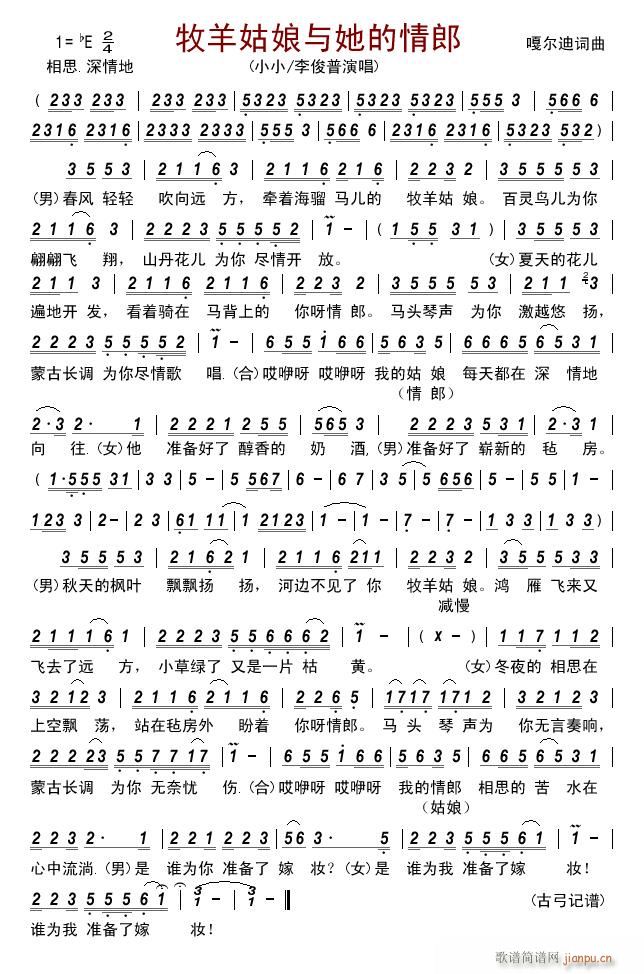 1=♭E 2/4 牧羊姑娘与她的情郎 嘎尔迪词曲
相思.深情地 (小小/李俊普演唱)
( 233 233 | 233 233 | 5323 5323 | 5323 5323 | 555 5 3 | 566 6
2316 2316 | 2333 2333 | 555 5 | 566 6 | 2316 2316 | 5323 5323 | 5553 532 )
3 5 5 3 | 2 1 1 6 3 | 3 2 1 1 6 2 1 6 | 2 2 3 2 | 3 5 5 5 5 3
(男)春风 轻轻 吹向远 方, 牵着海骝 马儿的 牧羊姑 娘。 百灵鸟儿为你
2 1 1 6 3 | 2 2 2 3 5 5 5 5 5 | 1 - | ( 1 5 5 3 1 ) | 3 5 5 5 3
翩翩飞 翔, 山丹花儿 为你 尽情开 放。 (女)夏天的花儿
2 1 2 1 3 | 3 2 2 2 2 1 1 6 | 2 2 6 5 | 3 5 5 3 2 2 | 2 2 1 3
遍地开 发, 看着骑在 马背上的 你呀情 郎。 马头琴声 为你 激越悠 扬,
2 2 2 3 5 5 5 5 2 | 1 - | 6 5 5 1 6 6 | 5 5 6 3 5 | 2 2 6 5 5 3 1
蒙古长调 为你尽情歌 唱.(合)哎咿呀 哎咿呀 我的姑 娘 每天都在 深 情地
(情 郎)
2·3 2· 1 | 2 2 2 1 2 5 5 | 5653 | 2 2 2 3 5 3 1 | 2·3 1
向 往.(女)他 准备好了 醇香的 奶 酒,(男)准备好了 崭新的 毡 房。
( 1·555 31 | 3 2 3 | 5 - | 5 5671 | 6 - | 6 7 | 3 5 | 5 6 2 4
1 2 3 3 | 2 - | 2 3 | 61 11 | 1 2123 | 1 - | 1 - | 7 - | 7 - | 1 3 )
3 5 5 5 3 | 2 1 6 2 1 | 2 1 1 1 6 2 1 1 | 2 2 3 2 | 3 5 5 5 3
(男)秋天的枫叶 飘飘扬 扬, 河边不见了 你 牧羊姑 娘。鸿 雁 飞来又
减慢
2 1 1 1 6 1 | 2 2 2 2 5 5 6 6 6 2 | 1 - | ( x - ) | 1 1 7 1 1 2
飞去了远 方, 小草绿了 又是一片 枯 黄。 (女)冬夜的 相思在
3 2 1 2 3 | 2 2 2 1 2 1 1 6 | 2 2 6 5 | 1717 1712 | 5 5 6 3 1
上空飘 荡, 站在毡房外 盼着 你呀情郎。 马 头 琴 声为 你无言奏响,
2 2 2 2 3 5 5 7 7 1 7 | 1 - | 6 5 5 1 6 6 | 5 5 6 3 5 | 6 6 5 6 5 3 1
蒙古长调 为你 无奈忧 伤.(合)哎咿呀 哎咿呀 我的情郎 相思的 苦 水在
(姑娘)
2 2 3 2· 1 | 2 2 2 1 2 2 3 | 5 6 3· 5 | 2 2 2 3 5 5 5 6 | 5 1
心中流淌.(男)是 谁为你 准备了 嫁 妆?(女)是 谁为我 准备了嫁 妆!
2 2 3 5 5 5 6 1 | 1 - | 1 - ‖ (古弓记谱)
谁为我 准备了嫁 妆!
歌谱简谱网
jianpu.cn